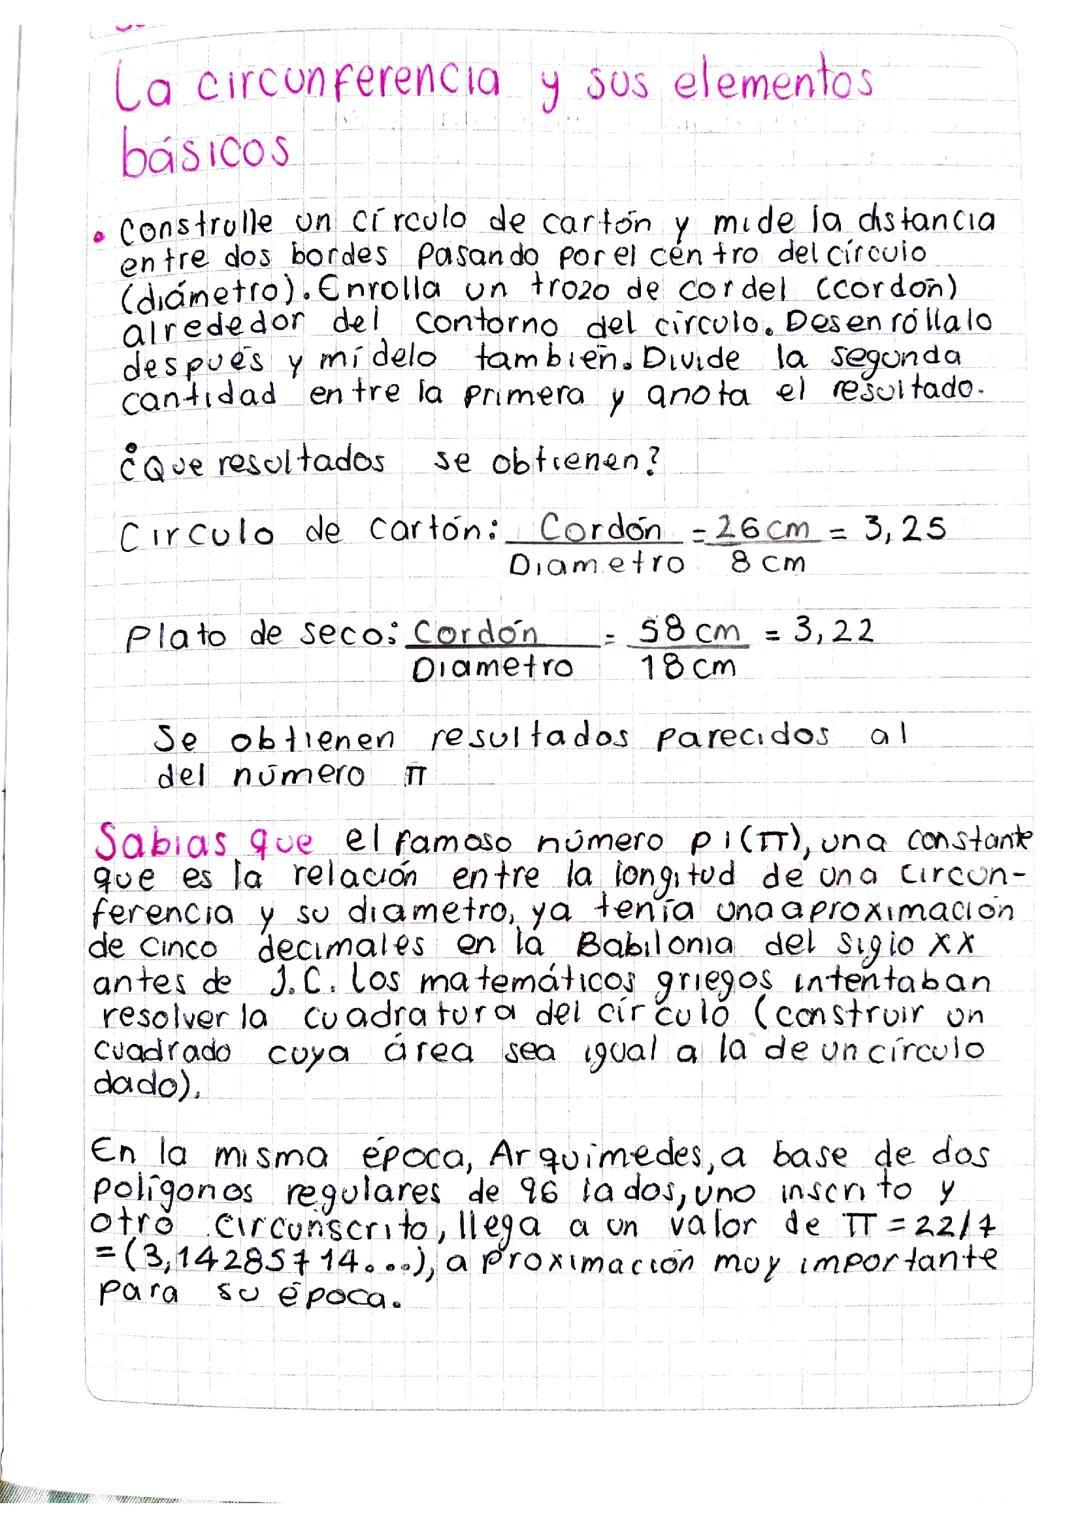 La circunferencia y sus elementos
básicos
• Construlle un círculo de cartón y mide la distancia
entre dos bordes pasando por el centro del círculo
(diámetro). Enrolla un trozo de cordel (cordón)
alrededor del contorno del círculo. Desenróllalo
después y mídelo también. Divide la segunda
cantidad entre la primera y anota el resultado.
¿Que resultados se obtienen?
Circulo de cartón: Cordón = 26 cm = 3,25
Diametro 8 cm
Plato de seco: Cordón = 58 cm = 3,22
Diametro 18 cm
Se obtienen resultados parecidos al
del número π
Sabias que el famoso número pi (π), una constante
que es la relación entre la longitud de una circun-
ferencia y su diametro, ya tenía una aproximación
de cinco decimales en la Babilonia del siglo XX
antes de J.C. Los matemáticos griegos intentaban
resolver la cuadratura del círculo (construir un
cuadrado cuya área sea igual a la de un círculo
dado).
En la misma época, Arquimedes, a base de dos
polígonos regulares de 96 lados, uno inscrito y
otro circunscrito, llega a un valor de π = 22/7
= (3,14285714...), aproximación muy importante
para su época.